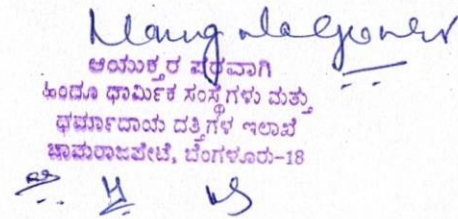 ಆಯುಕ್ತರ ಪರವಾಗಿ
ಹಿಂದೂ ಧಾರ್ಮಿಕ ಸಂಸ್ಥೆಗಳು ಮತ್ತು
ಧರ್ಮಾದಾಯ ದತ್ತಿಗಳ ಇಲಾಖೆ
ಚಾಮರಾಜಪೇಟೆ, ಬೆಂಗಳೂರು-18